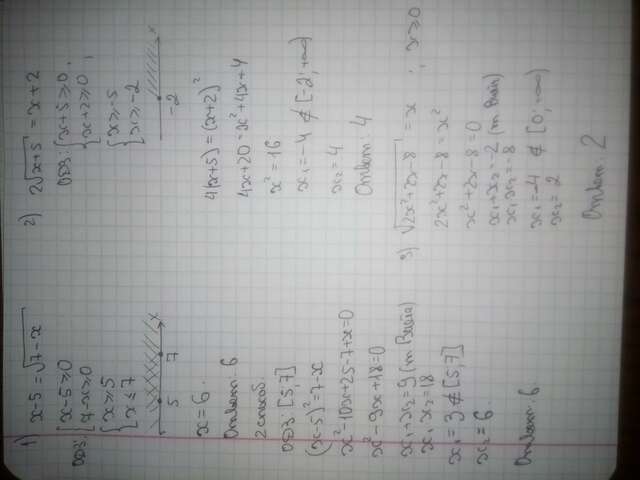 1) x-5=√7-x
ОДЗ: {x-5≥0
{7-x≥0
{x≥5
{x≤7
5 7 x
x=6.
Ответ: 6
2 способ.
ОДЗ: [5;7]
(x-5)²=7-x
x²-10x+25-7+x=0
x²-9x+18=0
x₁+x₂=9 (т Виета)
x₁x₂=18
x₁=3 ∉ [5;7]
x₂=6.
Ответ: 6
2) 2√x+5 = x+2
ОДЗ: {x+5≥0,
{x+2≥0,
{x≥-5
{x≥-2
-2 x
4(x+5)=(x+2)²
4x+20=x²+4x+4
x²=16
x₁=-4 ∉ [-2;+∞)
x₂=4
Ответ: 4
3) √2x²+2x-8 = x , x≥0
2x²+2x-8=x²
x²+2x-8=0
x₁+x₂=-2 (т Виета)
x₁x₂=-8
x₁=-4 ∉ [0;+∞)
x₂=2
Ответ: 2